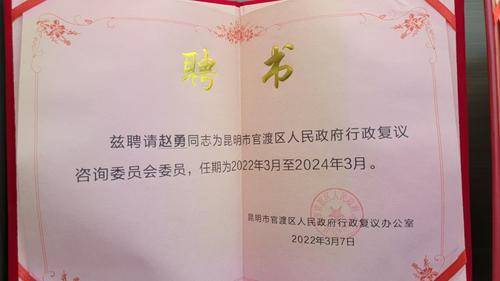 聘 书
兹聘请赵勇同志为昆明市官渡区人民政府行政复议
咨询委员会委员，任期为2022年3月至2024年3月。
昆明市官渡区人民政府行政复议办公室
2022年3月7日